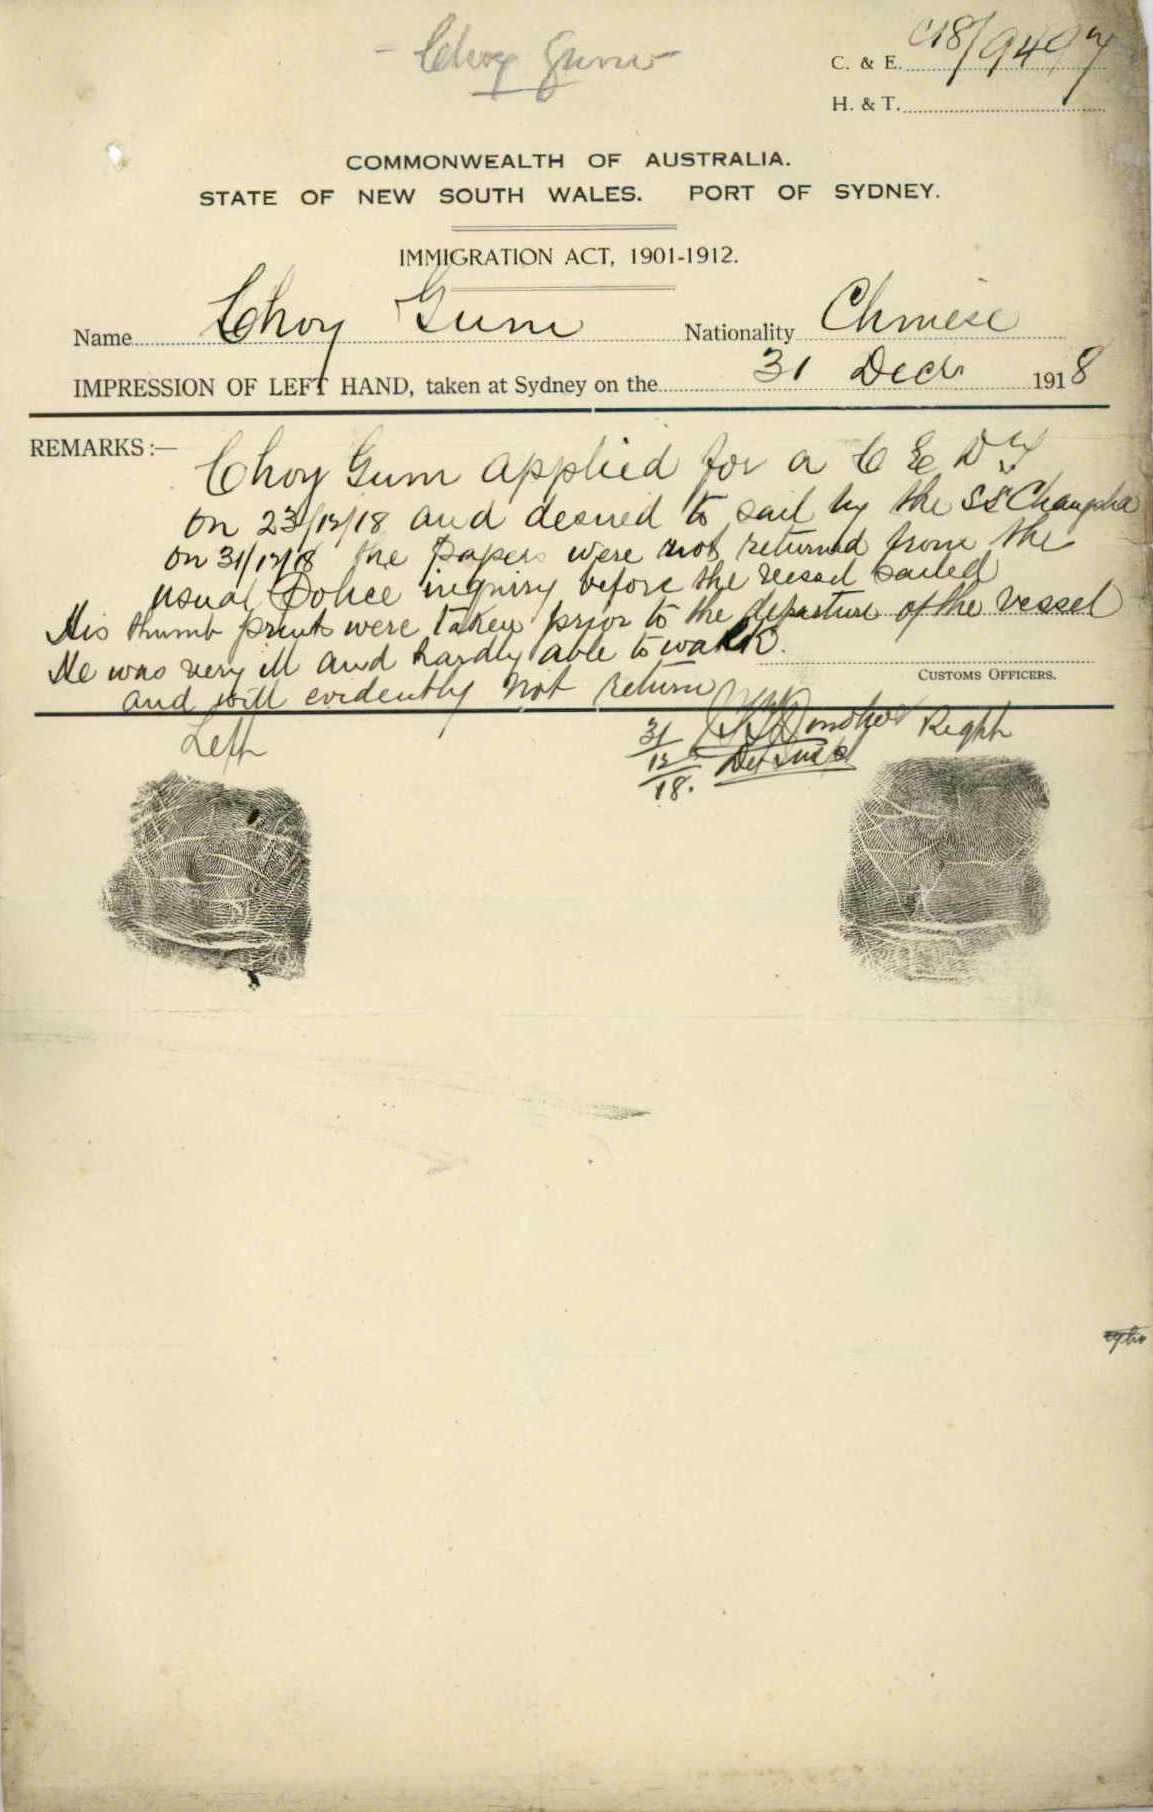 - Choy Gum -
C. & E. C18/9497
H. & T.
COMMONWEALTH OF AUSTRALIA.
STATE OF NEW SOUTH WALES. PORT OF SYDNEY.
IMMIGRATION ACT, 1901-1912.
Name Choy Gum Nationality Chinese
IMPRESSION OF LEFT HAND, taken at Sydney on the 31 Decr 1918
REMARKS:— Choy Gum applied for a C E D T
on 23/12/18 and desired to sail by the SS Changsha
on 31/12/18 the papers were not returned from the
usual Police inquiry before the vessel sailed
His thumb prints were taken prior to the departure of the vessel
He was very ill and hardly able to walk.
CUSTOMS OFFICERS.
and will evidently not return
Left 31/12/18. Donohoe Right
Det Insp